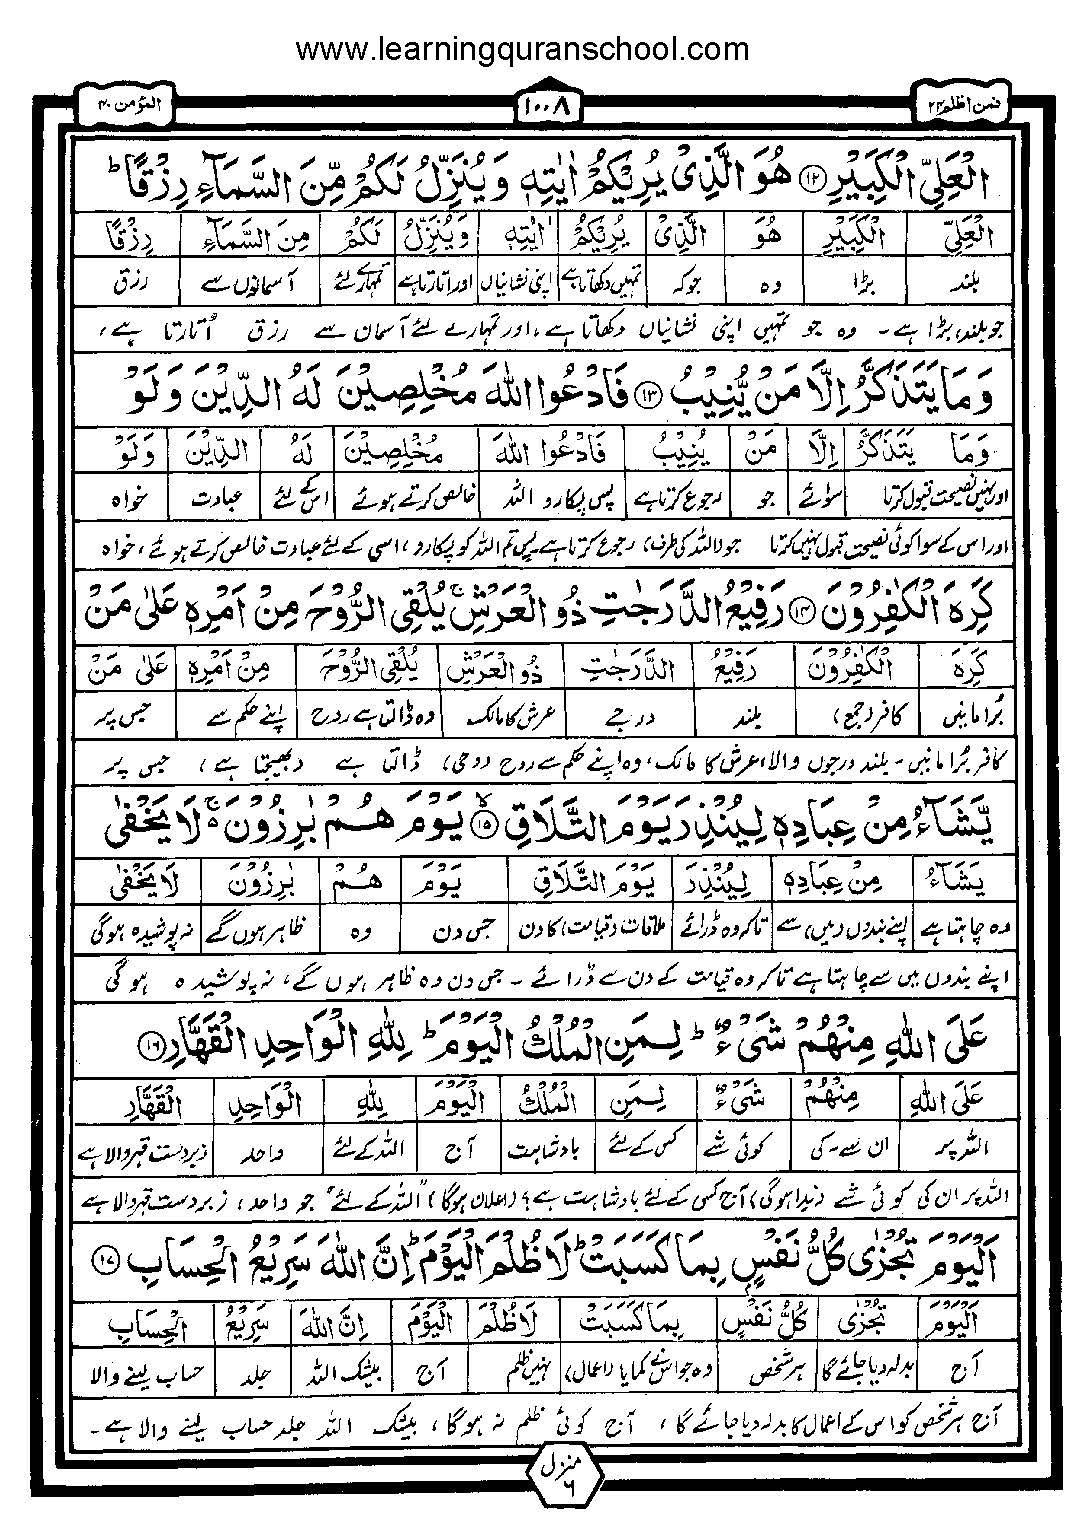 www.learningquranschool.com
فمن اظلم ۲۴
۱۰۰۸
المؤمن ۴۰
الْعَلِيِّ الْكَبِيْرِ ۝۱۲ هُوَ الَّذِيْ يُرِيْكُمْ اٰيٰتِهٖ وَيُنَزِّلُ لَكُمْ مِّنَ السَّمَآءِ رِزْقًا ؕ
الْعَلِيِّ الْكَبِيْرِ هُوَ الَّذِيْ يُرِيْكُمْ اٰيٰتِهٖ وَيُنَزِّلُ لَكُمْ مِنَ السَّمَآءِ رِزْقًا
بلند بڑا وہ جو کہ تمہیں دکھاتا ہے اپنی نشانیاں اور اتارتا ہے تمہارے لئے آسمانوں سے رزق
جو بلند، بڑا ہے۔ وہ جو تمہیں اپنی نشانیاں دکھاتا ہے، اور تمہارے لئے آسمان سے رزق اُتارتا ہے،
وَمَا يَتَذَكَّرُ اِلَّا مَنْ يُّنِيْبُ ۝۱۳ فَادْعُوا اللّٰهَ مُخْلِصِيْنَ لَهُ الدِّيْنَ وَلَوْ
وَمَا يَتَذَكَّرُ اِلَّا مَنْ يُنِيْبُ فَادْعُوا اللّٰهَ مُخْلِصِيْنَ لَهُ الدِّيْنَ وَلَوْ
اور نہیں نصیحت قبول کرتا سوائے جو رجوع کرتا ہے پس پکارو اللہ خالص کرتے ہوئے اس کے لئے عبادت خواہ
اور اس کے سوا کوئی نصیحت قبول نہیں کرتا جو اللہ کی طرف) رجوع کرتا ہے پس تم اللہ کو پکارو، اسی کے لئے عبادت خالص کرتے ہوئے، خواہ
كَرِهَ الْكٰفِرُوْنَ ۝۱۴ رَفِيْعُ الدَّرَجٰتِ ذُو الْعَرْشِ ۚ يُلْقِي الرُّوْحَ مِنْ اَمْرِهٖ عَلٰى مَنْ
كَرِهَ الْكٰفِرُوْنَ رَفِيْعُ الدَّرَجٰتِ ذُو الْعَرْشِ يُلْقِي الرُّوْحَ مِنْ اَمْرِهٖ عَلٰى مَنْ
بُرا مانیں کافر (جمع) بلند درجے عرش کا مالک وہ ڈالتا ہے روح اپنے حکم سے جس پر
کافر بُرا مانیں۔ بلند درجوں والا، عرش کا مالک، وہ اپنے حکم سے روح (وحی) ڈالتا ہے (بھیجتا ہے) جس پر
يَّشَآءُ مِنْ عِبَادِهٖ لِيُنْذِرَ يَوْمَ التَّلَاقِ ۝۱۵ يَوْمَ هُمْ بٰرِزُوْنَ ۚ لَا يَخْفٰى
يَشَآءُ مِنْ عِبَادِهٖ لِيُنْذِرَ يَوْمَ التَّلَاقِ يَوْمَ هُمْ بٰرِزُوْنَ لَا يَخْفٰى
وہ چاہتا ہے اپنے بندوں (میں) سے تاکہ وہ ڈرائے ملاقات (قیامت) کا دن جس دن وہ ظاہر ہوں گے نہ پوشیدہ ہوگی
اپنے بندوں میں سے چاہتا ہے تاکہ وہ قیامت کے دن سے ڈرائے۔ جس دن وہ ظاہر ہوں گے، نہ پوشیدہ ہوگی
عَلَى اللّٰهِ مِنْهُمْ شَيْءٌ ؕ لِمَنِ الْمُلْكُ الْيَوْمَ ؕ لِلّٰهِ الْوَاحِدِ الْقَهَّارِ ۝۱۶
عَلَى اللّٰهِ مِنْهُمْ شَيْءٌ لِمَنِ الْمُلْكُ الْيَوْمَ لِلّٰهِ الْوَاحِدِ الْقَهَّارِ
اللہ پر ان سے۔ کی کوئی شے کس کے لئے بادشاہت آج اللہ کے لئے واحد زبردست قہر والا ہے
اللہ پر ان کی کوئی شے (نداہوگی) آج کس کے لئے بادشاہت ہے؟ (اعلان ہوگا) "اللہ کے لئے" جو واحد، زبردست قہر والا ہے
اَلْيَوْمَ تُجْزٰى كُلُّ نَفْسٍۭ بِمَا كَسَبَتْ ؕ لَا ظُلْمَ الْيَوْمَ ؕ اِنَّ اللّٰهَ سَرِيْعُ الْحِسَابِ ۝۱۷
اَلْيَوْمَ تُجْزٰى كُلُّ نَفْسٍ بِمَا كَسَبَتْ لَا ظُلْمَ الْيَوْمَ اِنَّ اللّٰهَ سَرِيْعُ الْحِسَابِ
آج بدلہ دیا جائے گا ہر شخص وہ جو اس نے کمایا (اعمال) نہیں ظلم آج بیشک اللہ جلد حساب لینے والا
آج ہر شخص کو اس کے اعمال کا بدلہ دیا جائے گا، آج کوئی ظلم نہ ہوگا، بیشک اللہ جلد حساب لینے والا ہے۔
منزل ۶